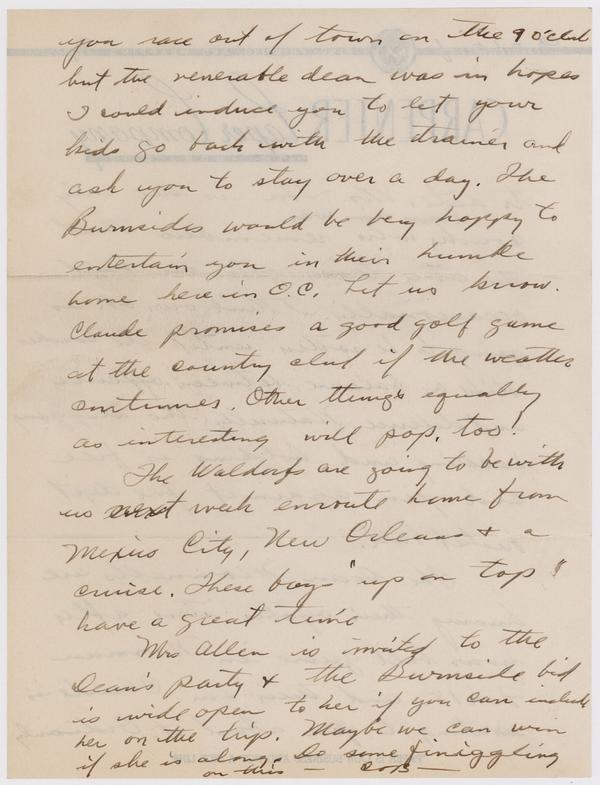 you race out of town on the 9 O'clock
but the venerable dean was in hopes
I could induce you to let your
kids go back with the trainer and
ask you to stay over a day. The
Burnsides would be very happy to
entertain you in their humble
home here in O.C. Let us know.
Claude promises a good golf game
at the country club if the weather
continues. Other things equally
as interesting will pop, too!
The Waldorfs are going to be with
us next week enroute home from
Mexico City, New Orleans & a
cruise. These boys "up on top"
have a great time
Mrs Allen is invited to the
Dean's party & the Burnside bid
is wide open to her if you can include
her on the trip. Maybe we can win
if she is along. Do some finiggling
on this —
CARPENTER Paper Company